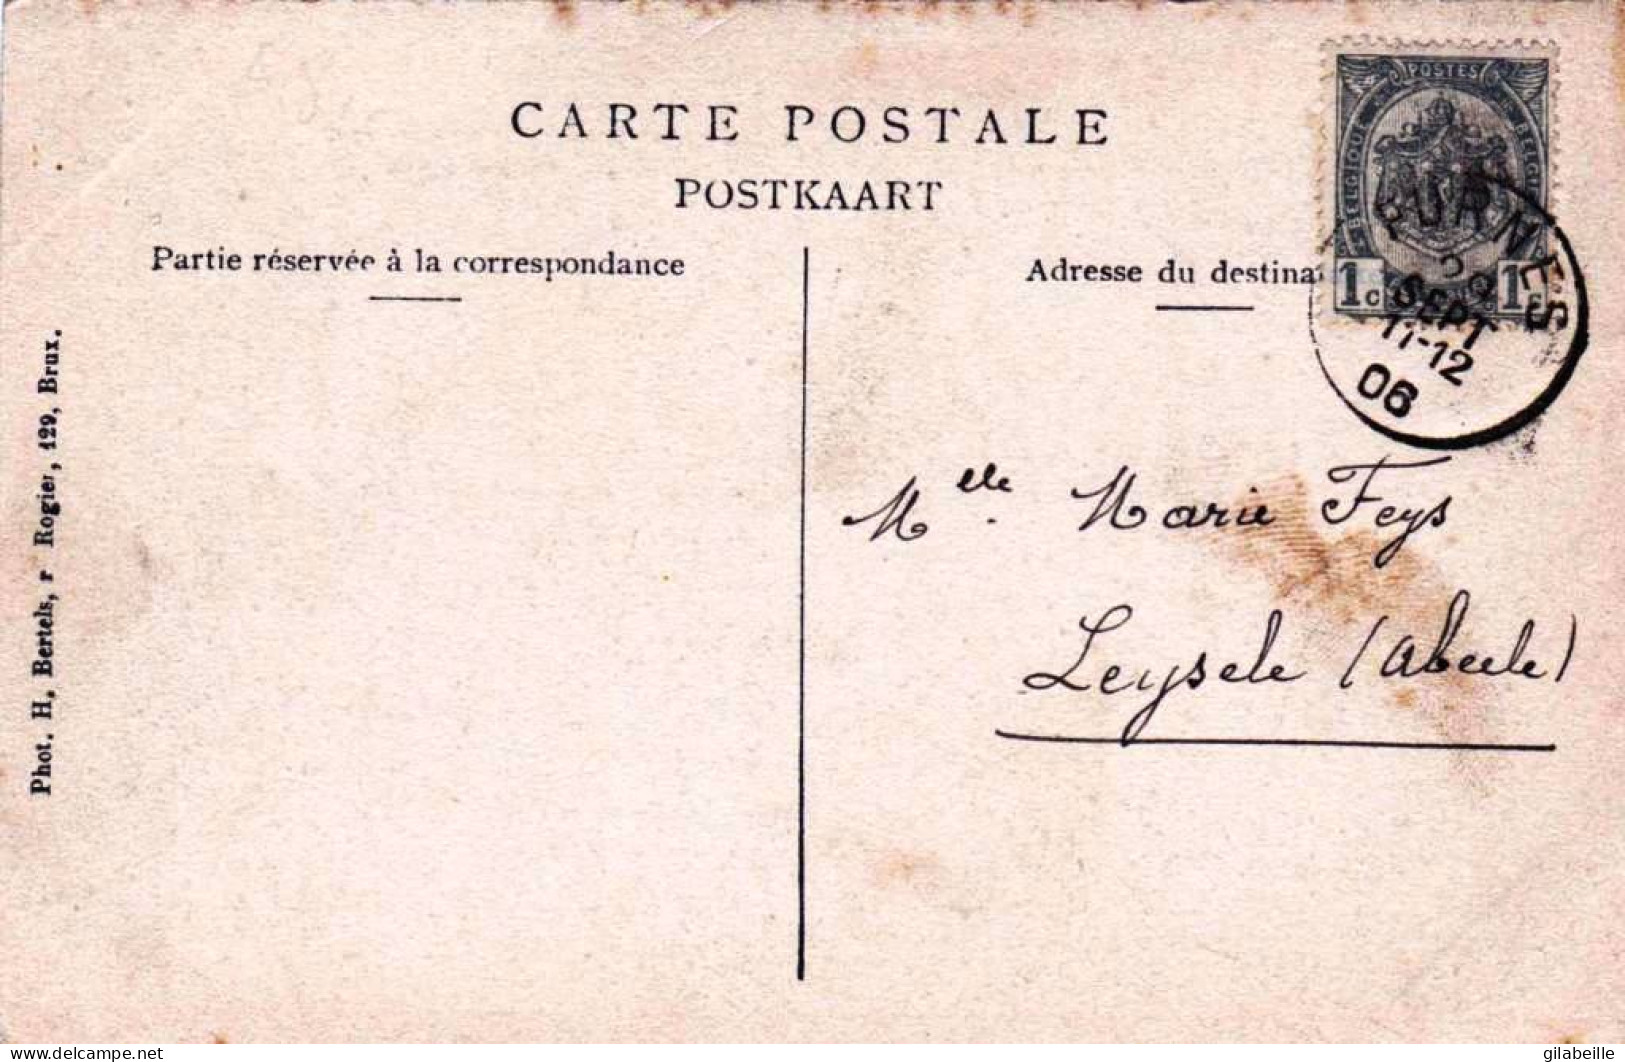 CARTE POSTALE
POSTKAART
Partie réservée à la correspondance
Adresse du destina
POSTES
BELGIQUE
BELGIË
1c 1c
FURNES
SEPT
11-12
06
Mlle. Marie Feys
Leysele (Abeele)
Phot. H. Bertels, r Rogier, 129, Brux.
www.delcampe.net
gilabeille